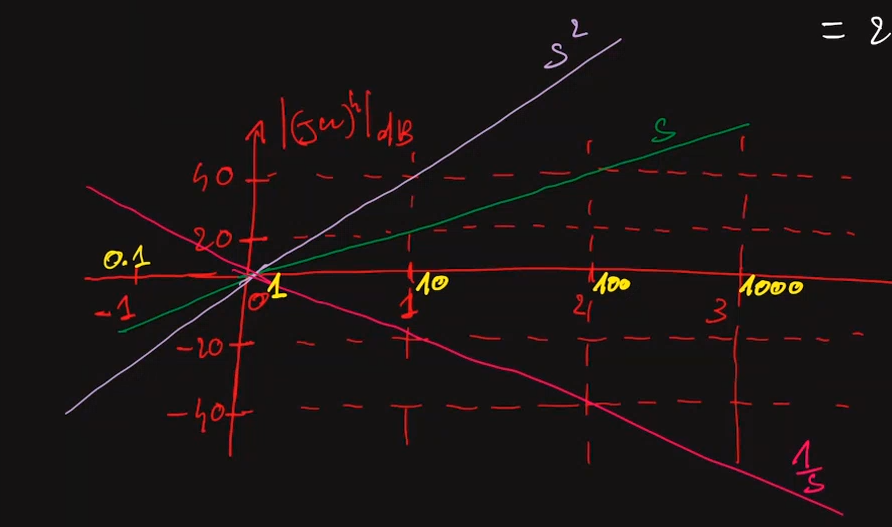 = 2
s²
|(jω)ʰ|dB
s
40
20
0.1
1
10
100
1000
-1
0
1
2
3
-20
-40
1/s